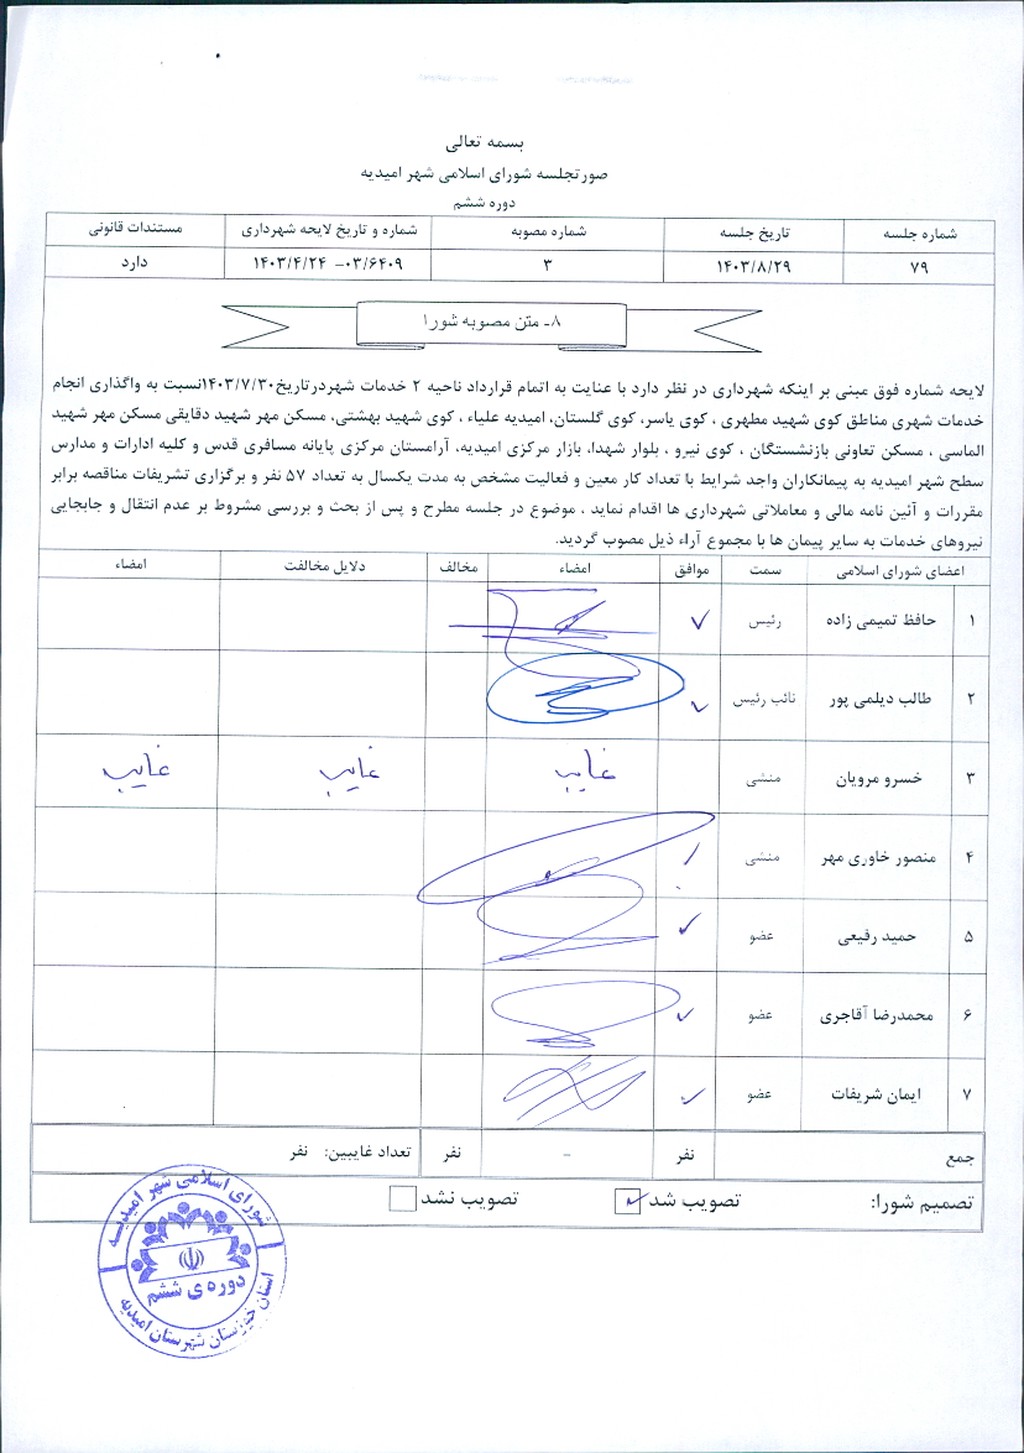 بسمه تعالی
صورتجلسه شورای اسلامی شهر امیدیه
دوره ششم
شماره جلسه تاریخ جلسه شماره مصوبه شماره و تاریخ لایحه شهرداری مستندات قانونی
۷۹ ۱۴۰۳/۸/۲۹ ۳ ۰۳/۶۴۰۹- ۱۴۰۳/۴/۲۴ دارد
۸- متن مصوبه شورا
لایحه شماره فوق مبنی بر اینکه شهرداری در نظر دارد با عنایت به اتمام قرارداد ناحیه ۲ خدمات شهردرتاریخ۱۴۰۳/۷/۳۰نسبت به واگذاری انجام
خدمات شهری مناطق کوی شهید مطهری ، کوی یاسر، کوی گلستان، امیدیه علیاء ، کوی شهید بهشتی، مسکن مهر شهید دقایقی مسکن مهر شهید
الماسی ، مسکن تعاونی بازنشستگان ، کوی نیرو ، بلوار شهدا، بازار مرکزی امیدیه، آرامستان مرکزی پایانه مسافری قدس و کلیه ادارات و مدارس
سطح شهر امیدیه به پیمانکاران واجد شرایط با تعداد کار معین و فعالیت مشخص به مدت یکسال به تعداد ۵۷ نفر و برگزاری تشریفات مناقصه برابر
مقررات و آئین نامه مالی و معاملاتی شهرداری ها اقدام نماید ، موضوع در جلسه مطرح و پس از بحث و بررسی مشروط بر عدم انتقال و جابجایی
نیروهای خدمات به سایر پیمان ها با مجموع آراء ذیل مصوب گردید.
اعضای شورای اسلامی سمت موافق امضاء مخالف دلایل مخالفت امضاء
۱ حافظ تمیمی زاده رئیس
۲ طالب دیلمی پور نائب رئیس
۳ خسرو مرویان منشی غایب غایب غایب
۴ منصور خاوری مهر منشی
۵ حمید رفیعی عضو
۶ محمدرضا آقاجری عضو
۷ ایمان شریفات عضو
جمع نفر - نفر تعداد غایبین: نفر
تصمیم شورا: تصویب شد تصویب نشد
شورای اسلامی شهر امیدیه
دوره ی ششم
استان خوزستان شهرستان امیدیه